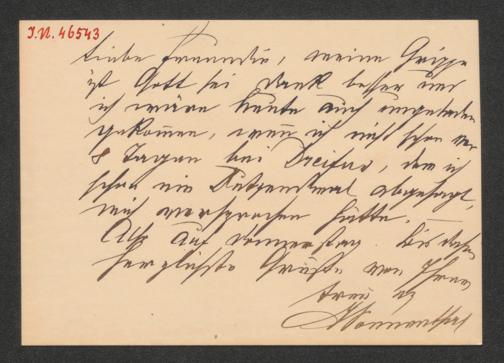 I.N. 46543
Liebe Freundin, meine Grippe
ist Gott sei Dank besser und
ich wäre heute auch ungeladen
gekommen, wenn ich nicht schon vor
8 Tagen bei Dreifus, den ich
schon ein Dutzendmal abgesagt,
mich versprochen hätte. —
Also auf Donnerstag. Bis dahin
herzlichste Grüße von Ihrem
treu
ASonnenthal